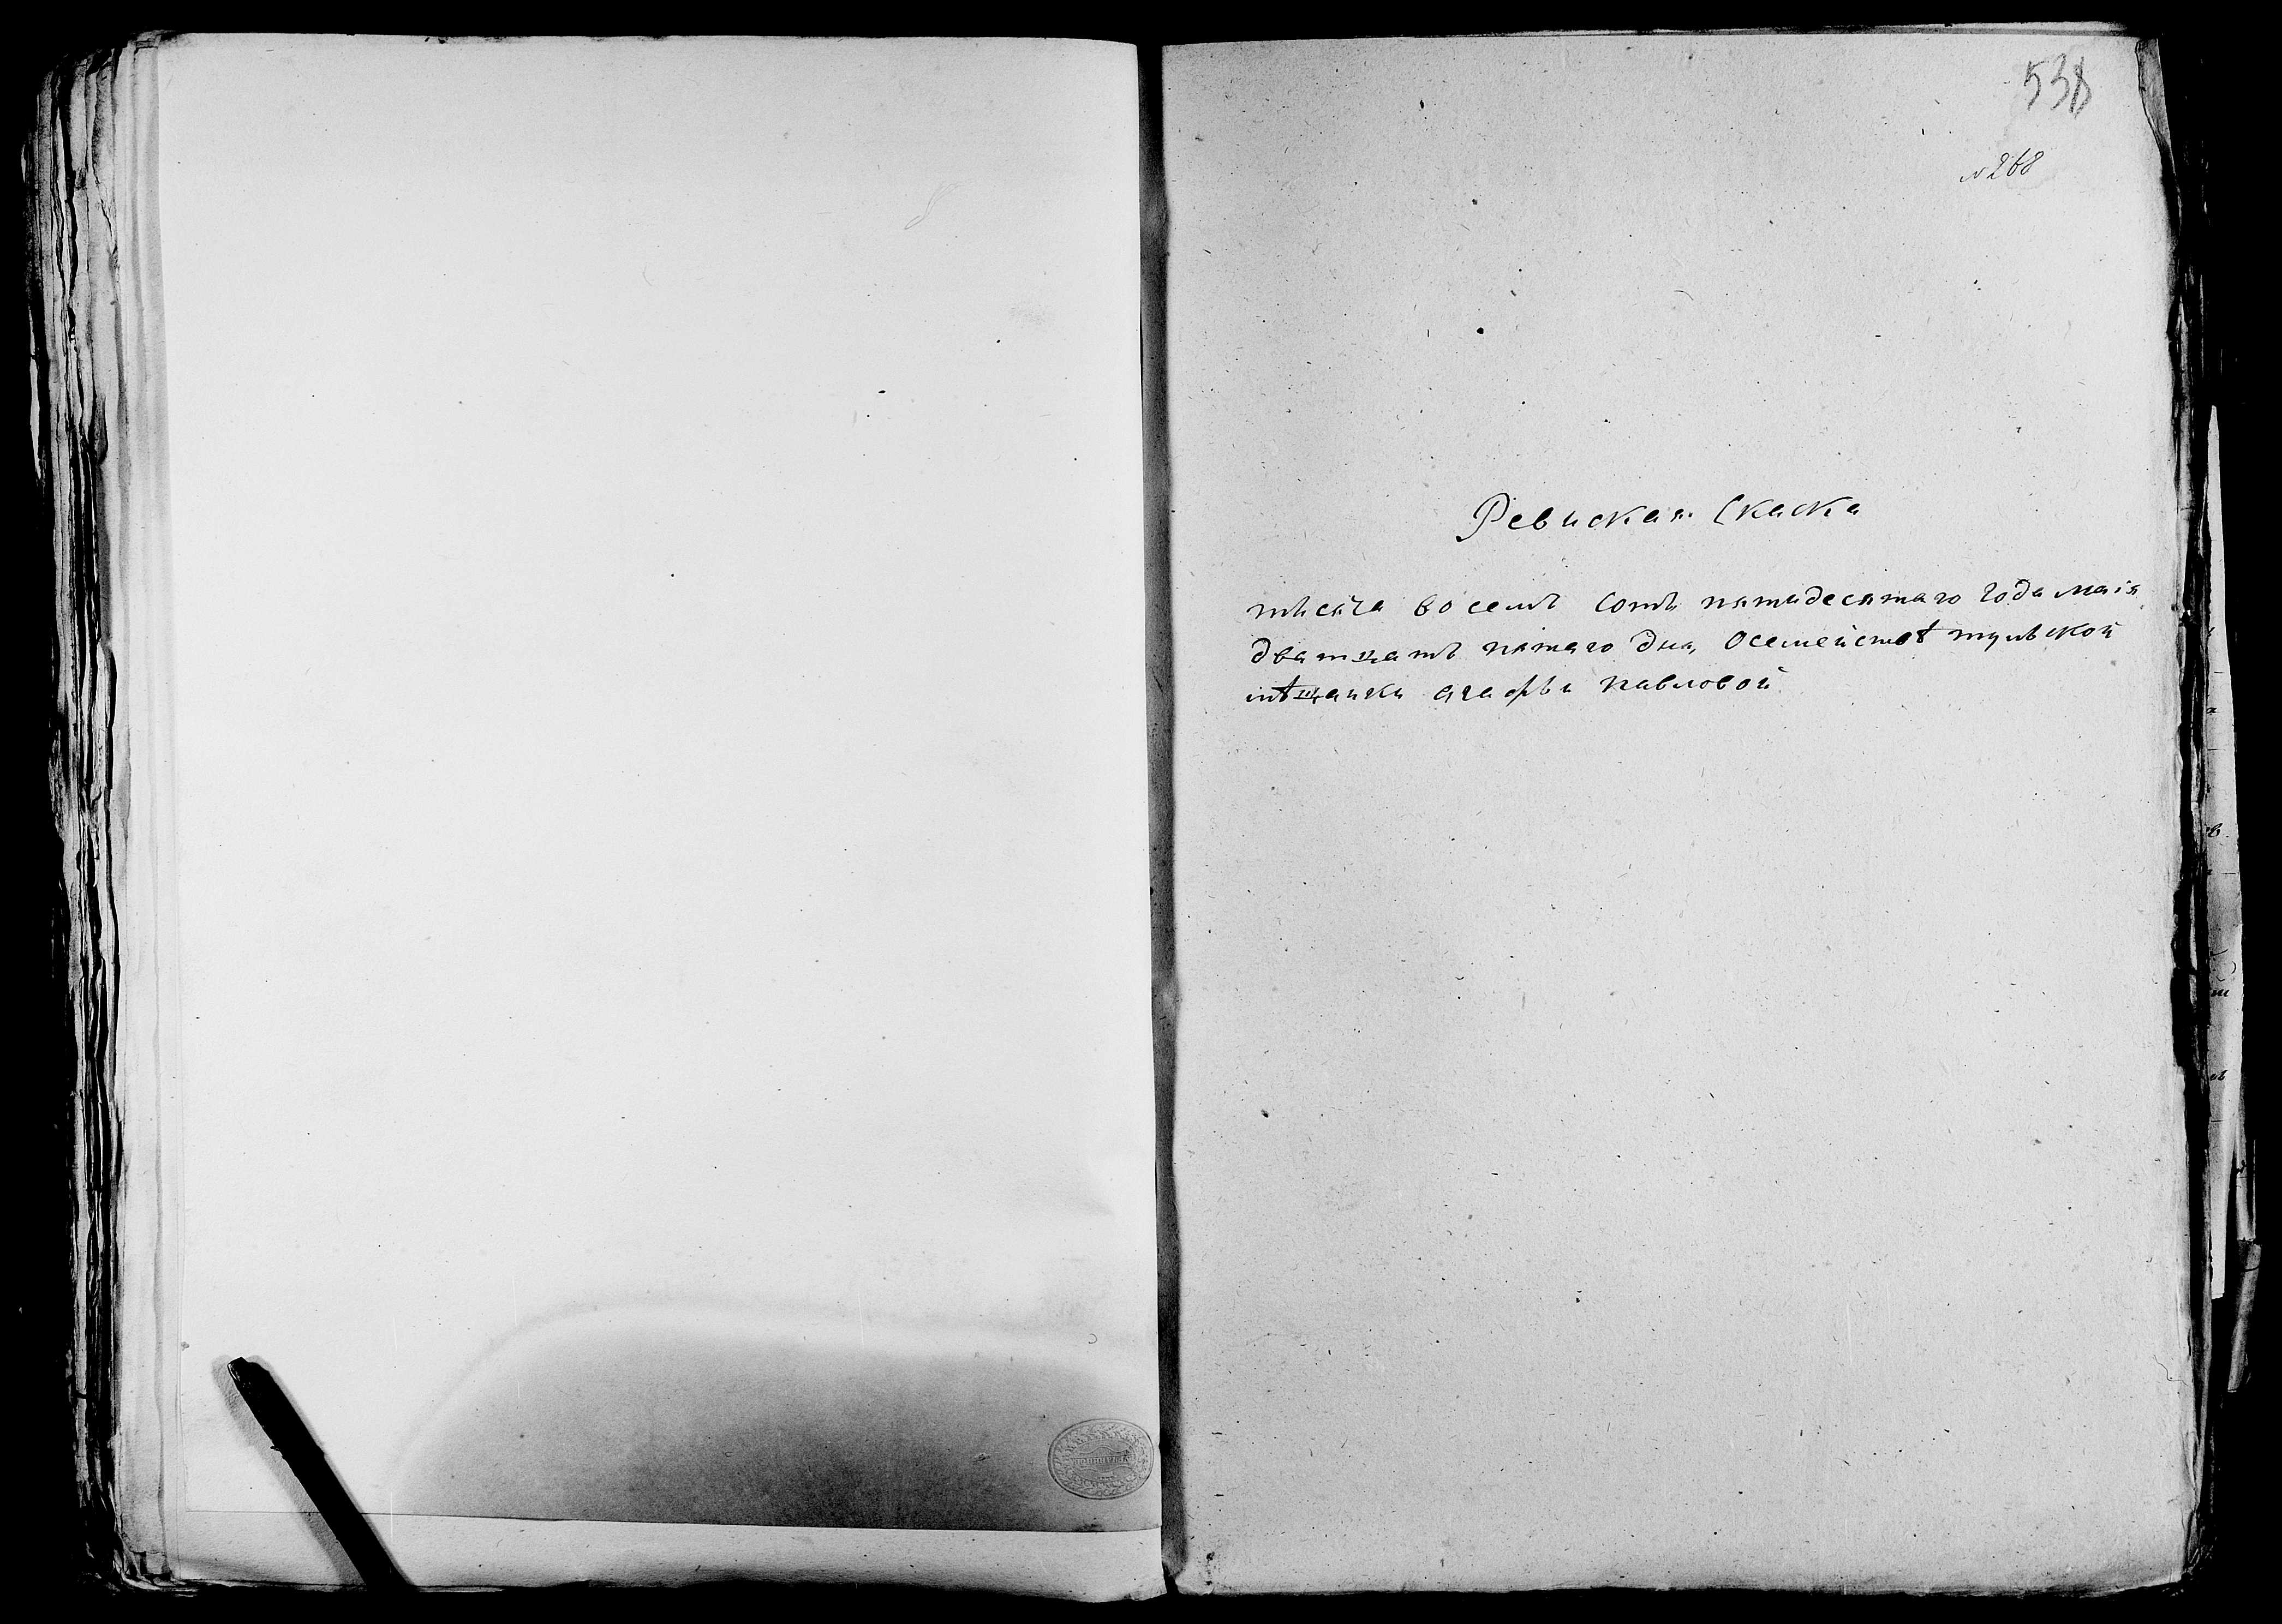 538
№ 268
Ревиская Скаска
тысяча восемь сотъ пятидесятаго года маія
дватцать пятаго дня, Осемействѣ тульской
мѣщанки агафьи павловой